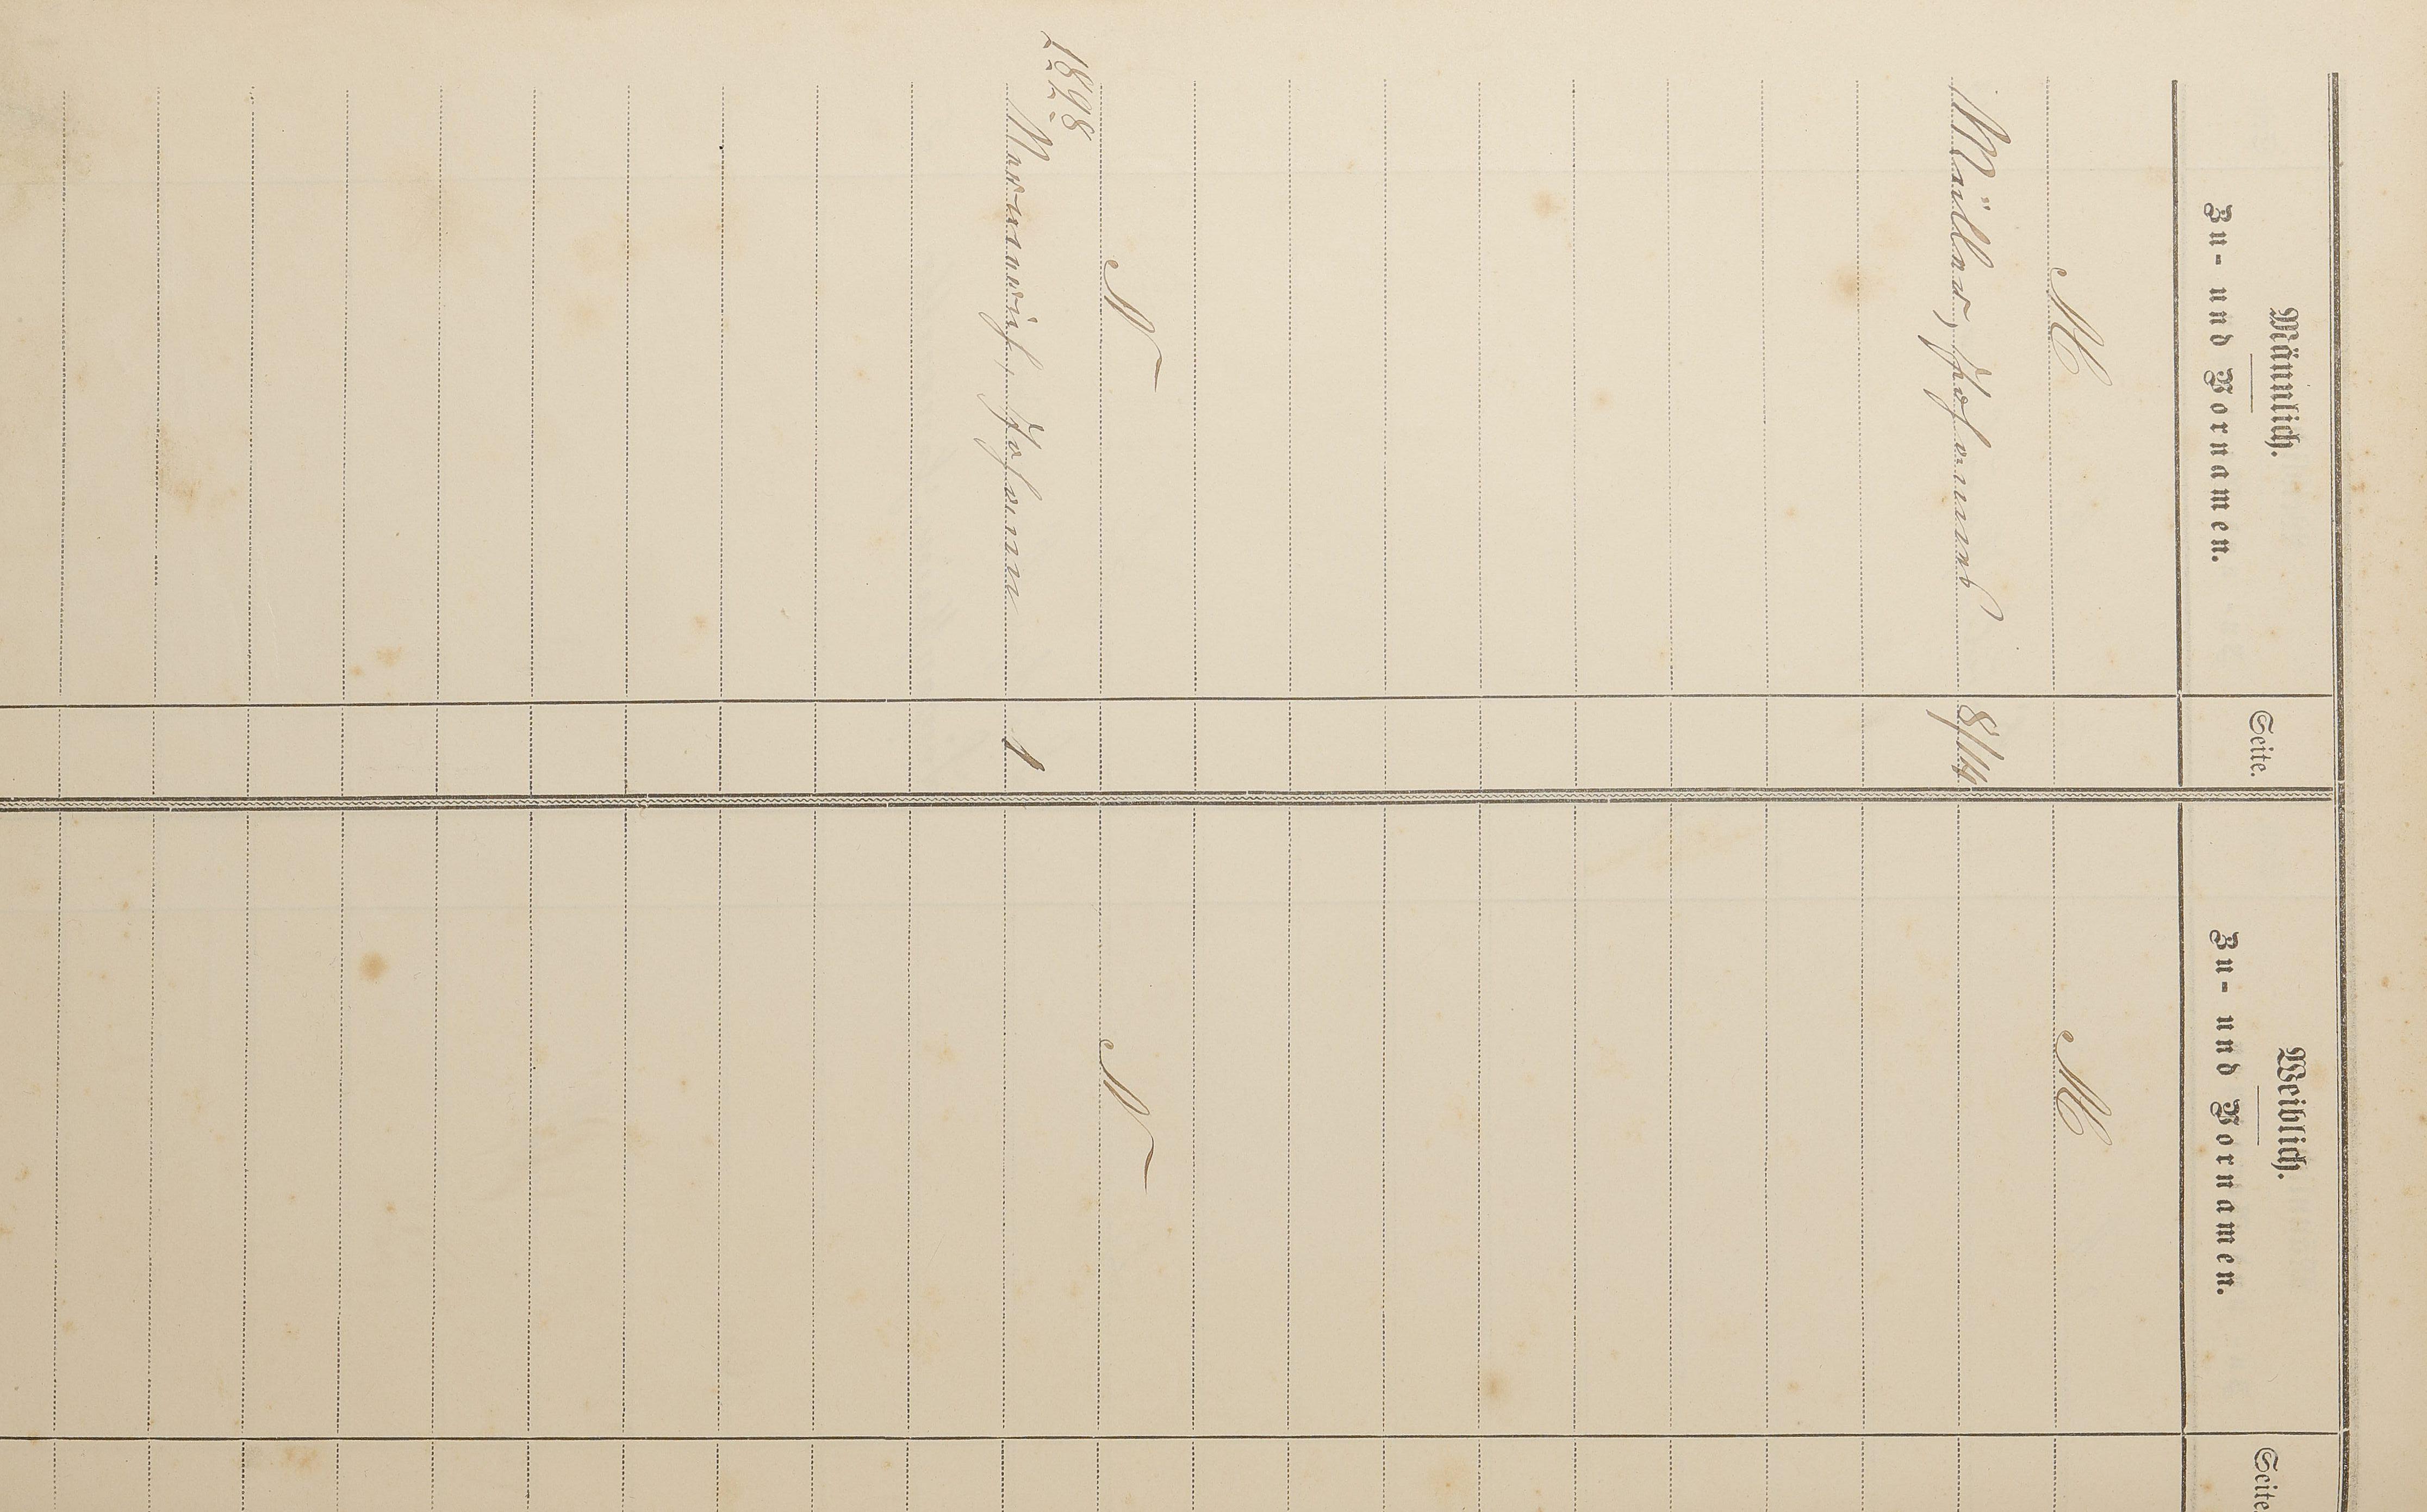 Männlich. Weiblich.
Zu- und Vornamen. Seite. Zu- und Vornamen. Seite
M M
Müller, Johannes 8/14
N N
1898
Johann 1